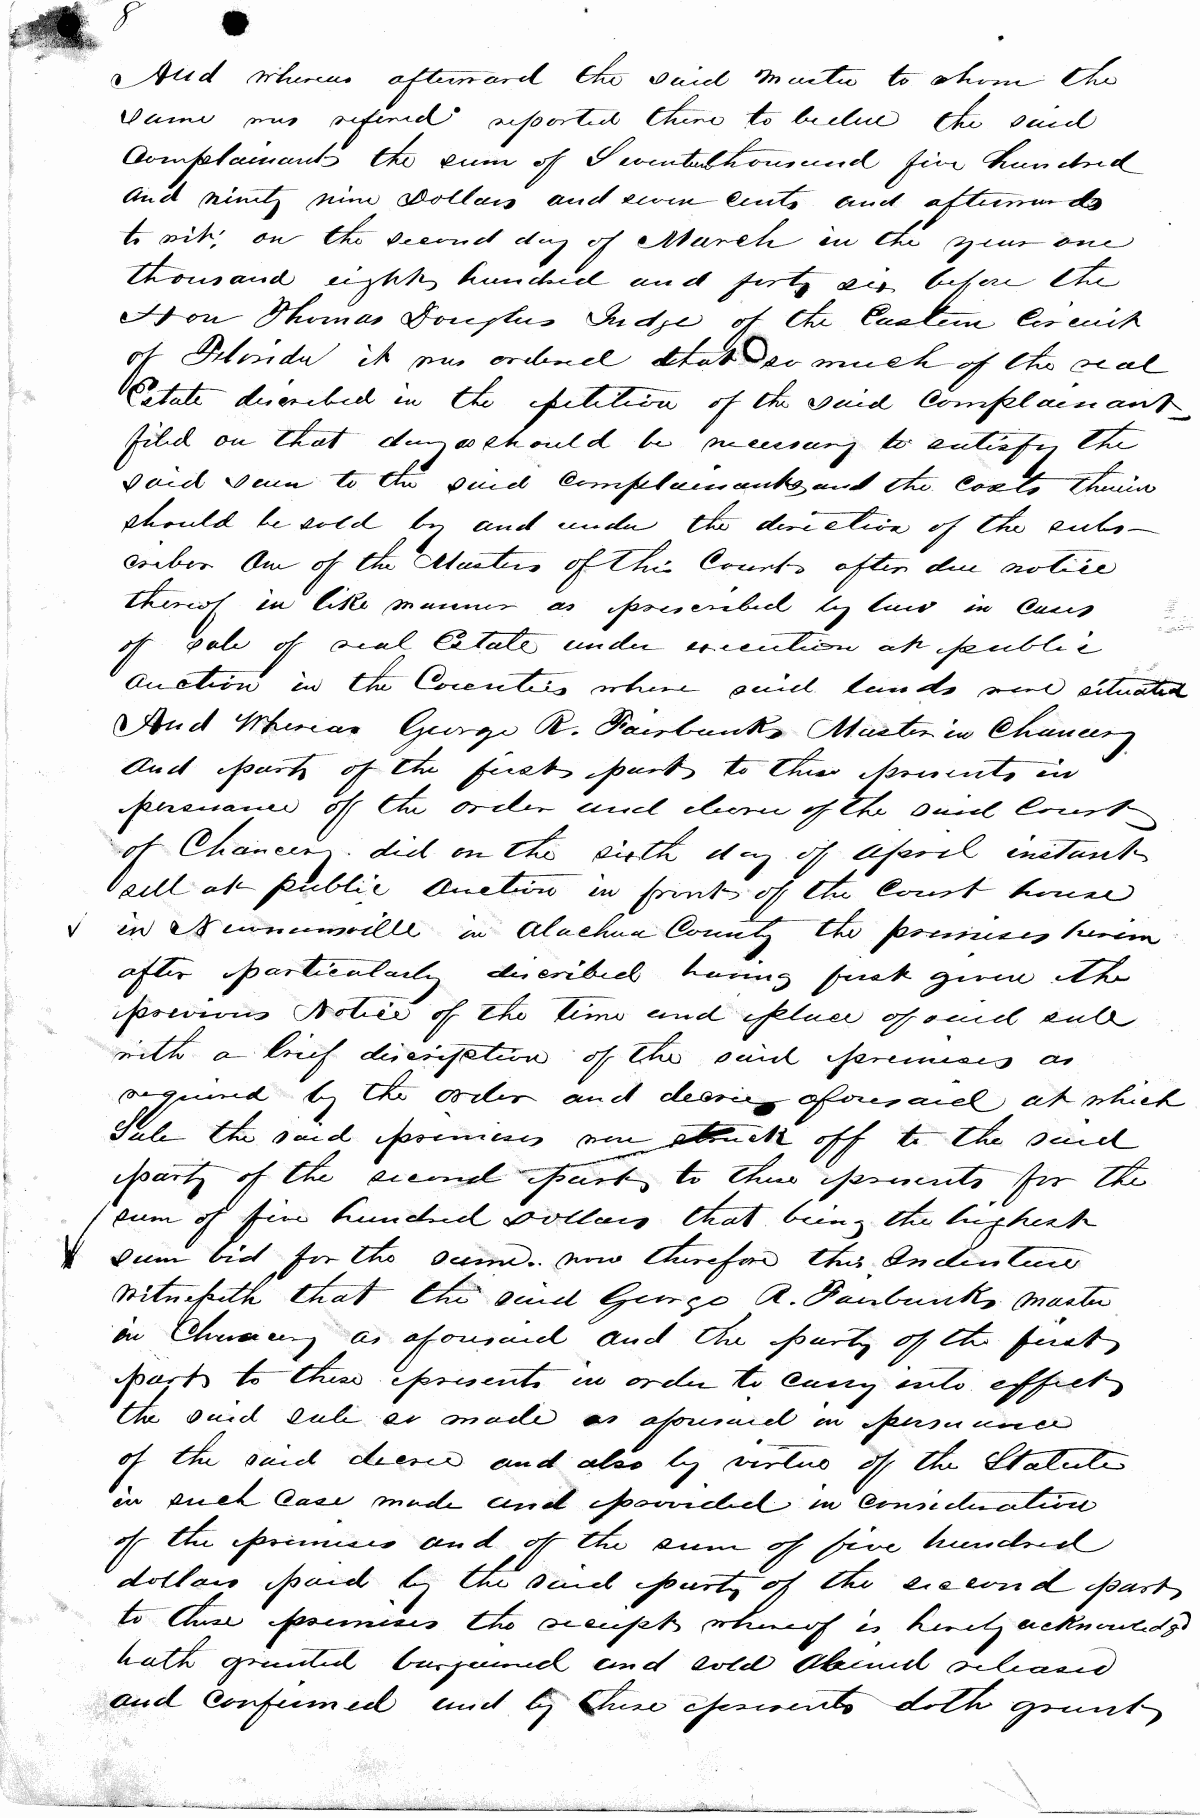 8
And whereas afterward the said Master to whom the
same was refered reported there to be due the said
Complainants the sum of Seventeen thousand five hundred
and ninety nine Dollars and seven cents and afterwards
to wit; on the second day of March in the year one
thousand eight hundred and forty six before the
Hon Thomas Douglas Judge of the Eastern Circuit
of Florida it was ordered that so much of the real
Estate discribed in the petition of the said Complainant
filed on that day as should be necessary to satisfy the
said sum to the said Complainants and the Costs therein
should be sold by and under the direction of the subs-
criber One of the Masters of this Court after due notice
thereof in like manner as prescribed by law in cases
of sale of real Estate under execution at public
auction in the Counties where said lands were situated
And Whereas George R. Fairbanks Master in Chancery
and party of the first part to these presents in
persuance of the order and decree of the said Court
of Chancery did on the sixth day of April instant
sell at public Auction in front of the Court house
in Newnansville in Alachua County the premises herein
after particularly discribed having first given the
previous Notice of the time and place of said sale
with a brief discription of the said premises as
required by the order and decree aforesaid at which
Sale the said premises were struck off to the said
party of the second part to these presents for the
sum of five hundred Dollars that being the highest
sum bid for the same. now therefore this Indenture
Witnesseth that the said George R. Fairbanks master
in Chancery as aforesaid and the party of the first
part to these presents in order to carry into effect
the said sale so made as aforesaid in persuance
of the said decree and also by virtue of the Statute
in such Case made and provided in consideration
of the premises and of the sum of five hundred
dollars paid by the said party of the second part
to these premises the receipt whereof is hereby acknowledgd
hath granted bargained and sold aliened released
and confirmed and by these presents doth grant